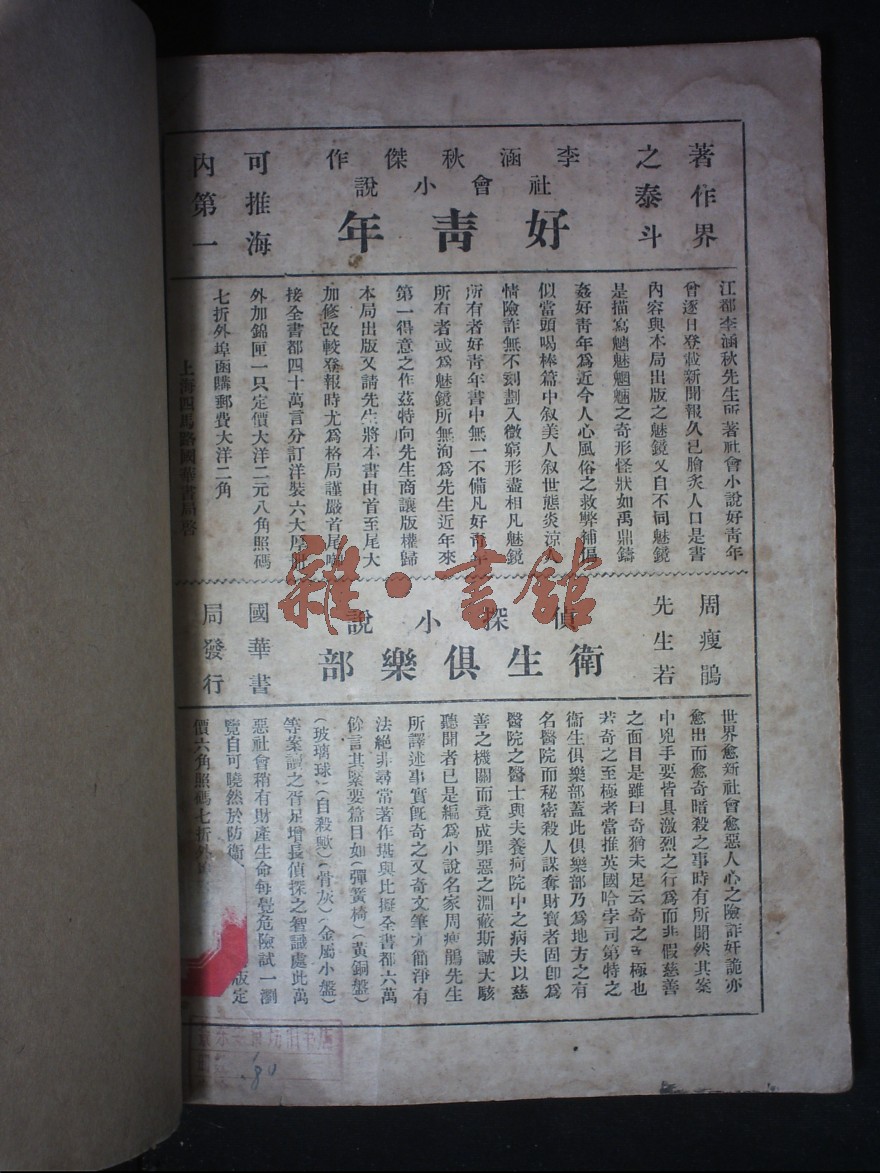 著作界
之泰斗
李涵秋傑作
社會小說
好青年
可推海
內第一
江都李涵秋先生所著社會小說好青年
曾逐日登載新聞報久已膾炙人口是書
內容與本局出版之魅鏡又自不同魅鏡
是描寫魑魅魍魎之奇形怪狀如禹鼎鑄
姦好青年爲近今人心風俗之救弊補偏
似當頭喝棒篇中叙美人叙世態炎涼人
情險詐無不刻劃入微窮形盡相凡魅鏡
所有者好青年書中無一不備凡好青年
所有者或爲魅鏡所無洵爲先生近年來
第一得意之作茲特向先生商讓版權歸
本局出版又請先生將本書由首至尾大
加修改較登報時尤爲格局謹嚴首尾啣
接全書都四十萬言分訂洋裝六大厚冊
外加錦匣一只定價大洋二元八角照碼
七折外埠函購郵費大洋二角
上海四馬路國華書局啓
周瘦鵑
先生若
偵探小說
衛生俱樂部
國華書
局發行
世界愈新社會愈惡人心之險詐奸詭亦
愈出而愈奇暗殺之事時有所聞然其案
中兇手要皆具激烈之行爲而非假慈善
之面目是雖曰奇猶未足云奇之至極也
若奇之至極者當推英國哈字司第特之
衛生俱樂部蓋此俱樂部乃爲地方之有
名醫院而秘密殺人謀奪財寶者固卽爲
醫院之醫士與夫養疴院中之病夫以慈
善之機關而竟成罪惡之淵藪斯誠大駭
聽聞者已是編爲小說名家周瘦鵑先生
所譯述事實旣奇之又奇文筆尤簡淨有
法絕非尋常著作堪與比擬全書都六萬
餘言其緊要篇目如(彈簧椅)(黃銅盤)
(玻璃球)(自殺歟)(骨灰)(金屬小盤)
等案讀之胥足增長偵探之智識處此萬
惡社會稍有財產生命每覺危險試一瀏
覽自可曉然於防衛
版定
價六角照碼七折外
雜·書館
.80